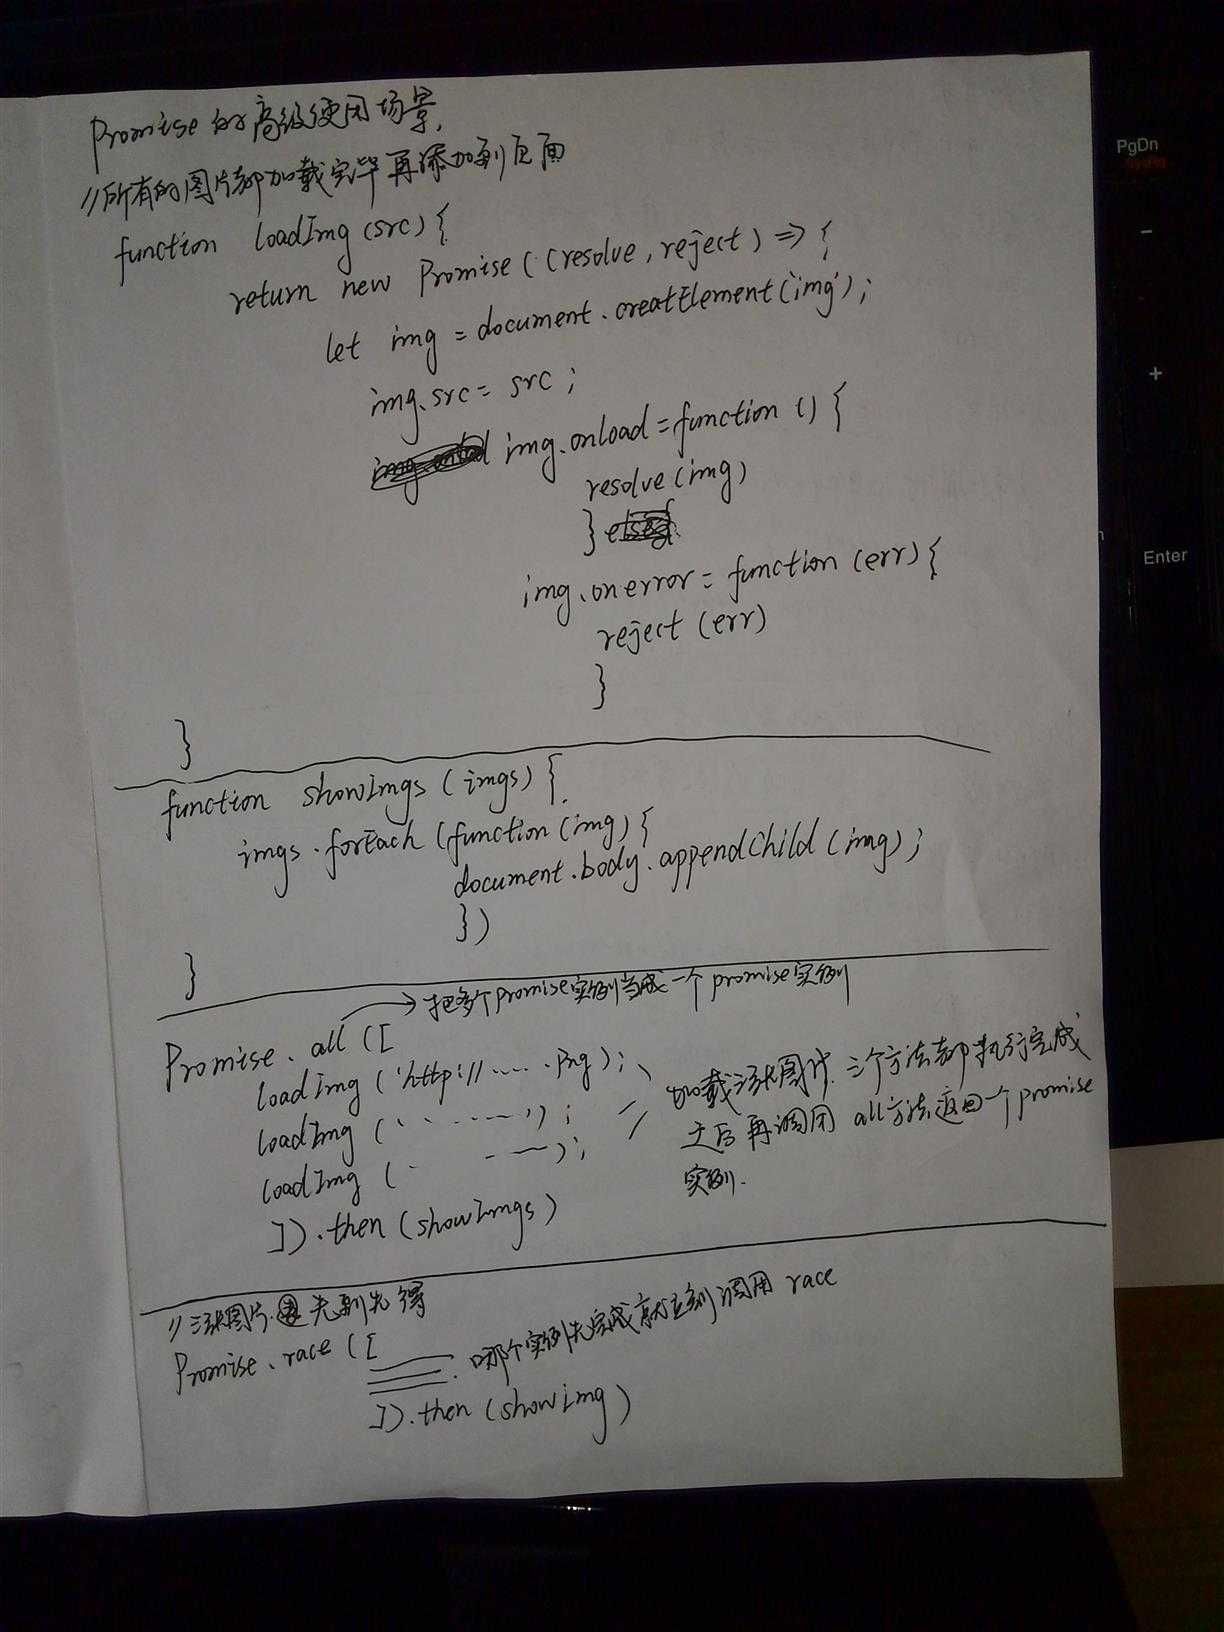 Promise的高级使用场景,
//所有的图片都加载完毕再添加到页面
function loadImg(src){
return new Promise((resolve,reject)=>{
let img = document.creatElement('img');
img.src = src;
img.onload = function () {
resolve(img)
}
img.onerror = function (err) {
reject (err)
}
}
function showImgs (imgs) {
imgs.forEach (function (img) {
document.body.appendChild (img);
})
}
→ 把多个promise实例当成一个promise实例
Promise.all ([
loadImg ('http://......png);
loadImg (
loadImg (
]).then (showImgs)
加载三张图片,三个方法都执行完成
之后再调用 all方法返回一个promise
实例.
//三张图片 先到先得
Promise.race ([
哪个实例先完成就立刻调用 race
]).then (showimg)
PgDn
SysRq
-
+
Enter